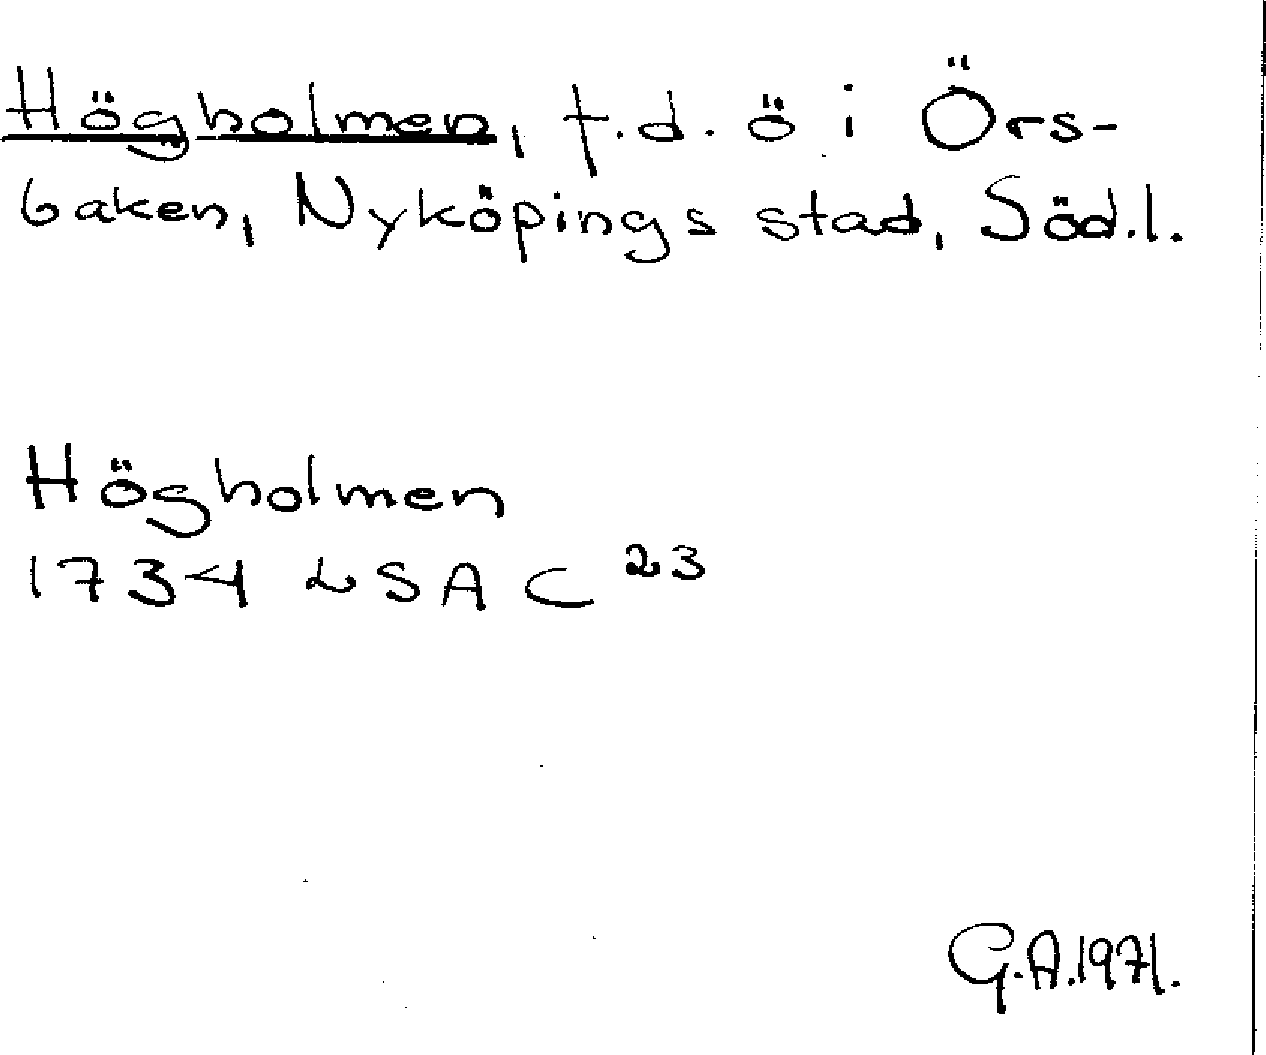 Högholmen, f.d. ö i Örs-
baken, Nyköpings stad, Söd.l.
Högholmen
1734 LSA C 23
G.A.1971.